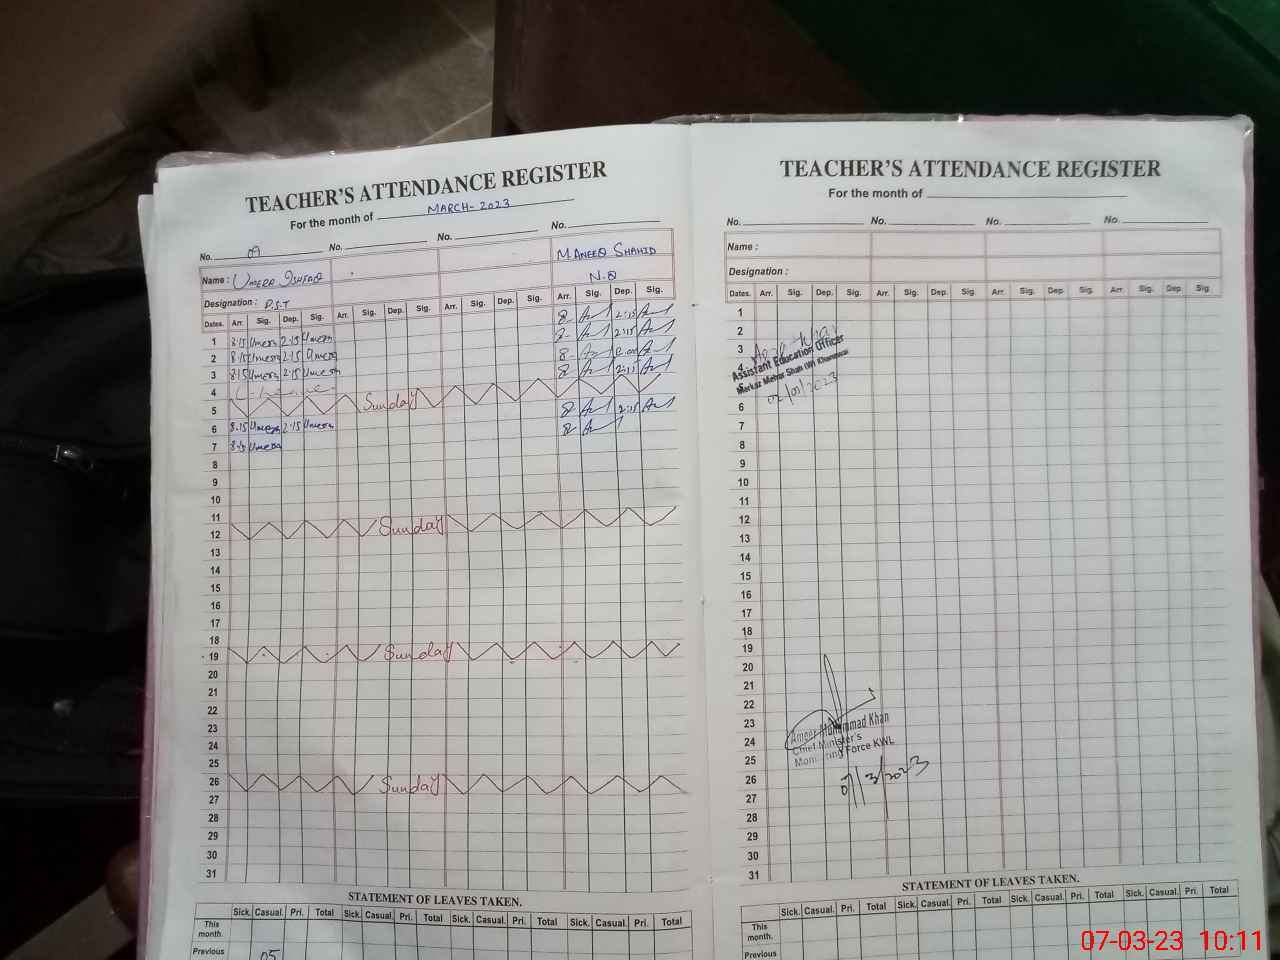 TEACHER'S ATTENDANCE REGISTER
For the month of MARCH-2023
No. 09 No. No. No.
Name : Umera Ishfaq M. ANEEQ SHAHID
Designation : P.S.T N.Q
Dates. Arr. Sig. Dep. Sig. Arr. Sig. Dep. Sig. Arr. Sig. Dep. Sig. Arr. Sig. Dep. Sig.
1 8.15 Umera 2.15 Umera 8 2:15
2 8.15 Umera 2.15 Umera 8 2:15
3 8.15 Umera 2.15 Umera 8
4 8 2:15
5 Sunday
6 8.15 Umera 2.15 Umera 8 2:15
7 8.15 Umera 8
8
9
10
11
12 Sunday
13
14
15
16
17
18
19 Sunday
20
21
22
23
24
25
26 Sunday
27
28
29
30
31
STATEMENT OF LEAVES TAKEN.
Sick. Casual. Pri. Total Sick. Casual. Pri. Total Sick. Casual. Pri. Total Sick. Casual. Pri. Total
This month.
Previous 05
TEACHER'S ATTENDANCE REGISTER
For the month of
No. No. No. No.
Name :
Designation :
Dates. Arr. Sig. Dep. Sig. Arr. Sig. Dep. Sig. Arr. Sig. Dep. Sig. Arr. Sig. Dep. Sig.
1
2
3
4
Assistant Education Officer
Markaz Mehar Shah (W) Khanewal
6
7
8
9
10
11
12
13
14
15
16
17
18
19
20
21
22
23
24
25
26
27
28
29
30
31
Ameer Muhammad Khan
Chief Minister's
Monitoring Force KWL
07/3/2023
STATEMENT OF LEAVES TAKEN.
Sick. Casual. Pri. Total Sick. Casual. Pri. Total Sick. Casual. Pri. Total Sick. Casual. Pri. Total
This month.
Previous
07-03-23 10:11